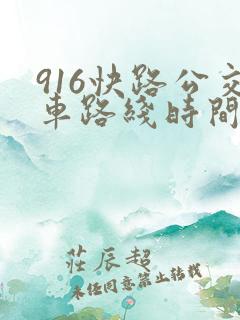 916快路公交
車路綫時間
莊辰超
未任同意禁止转载